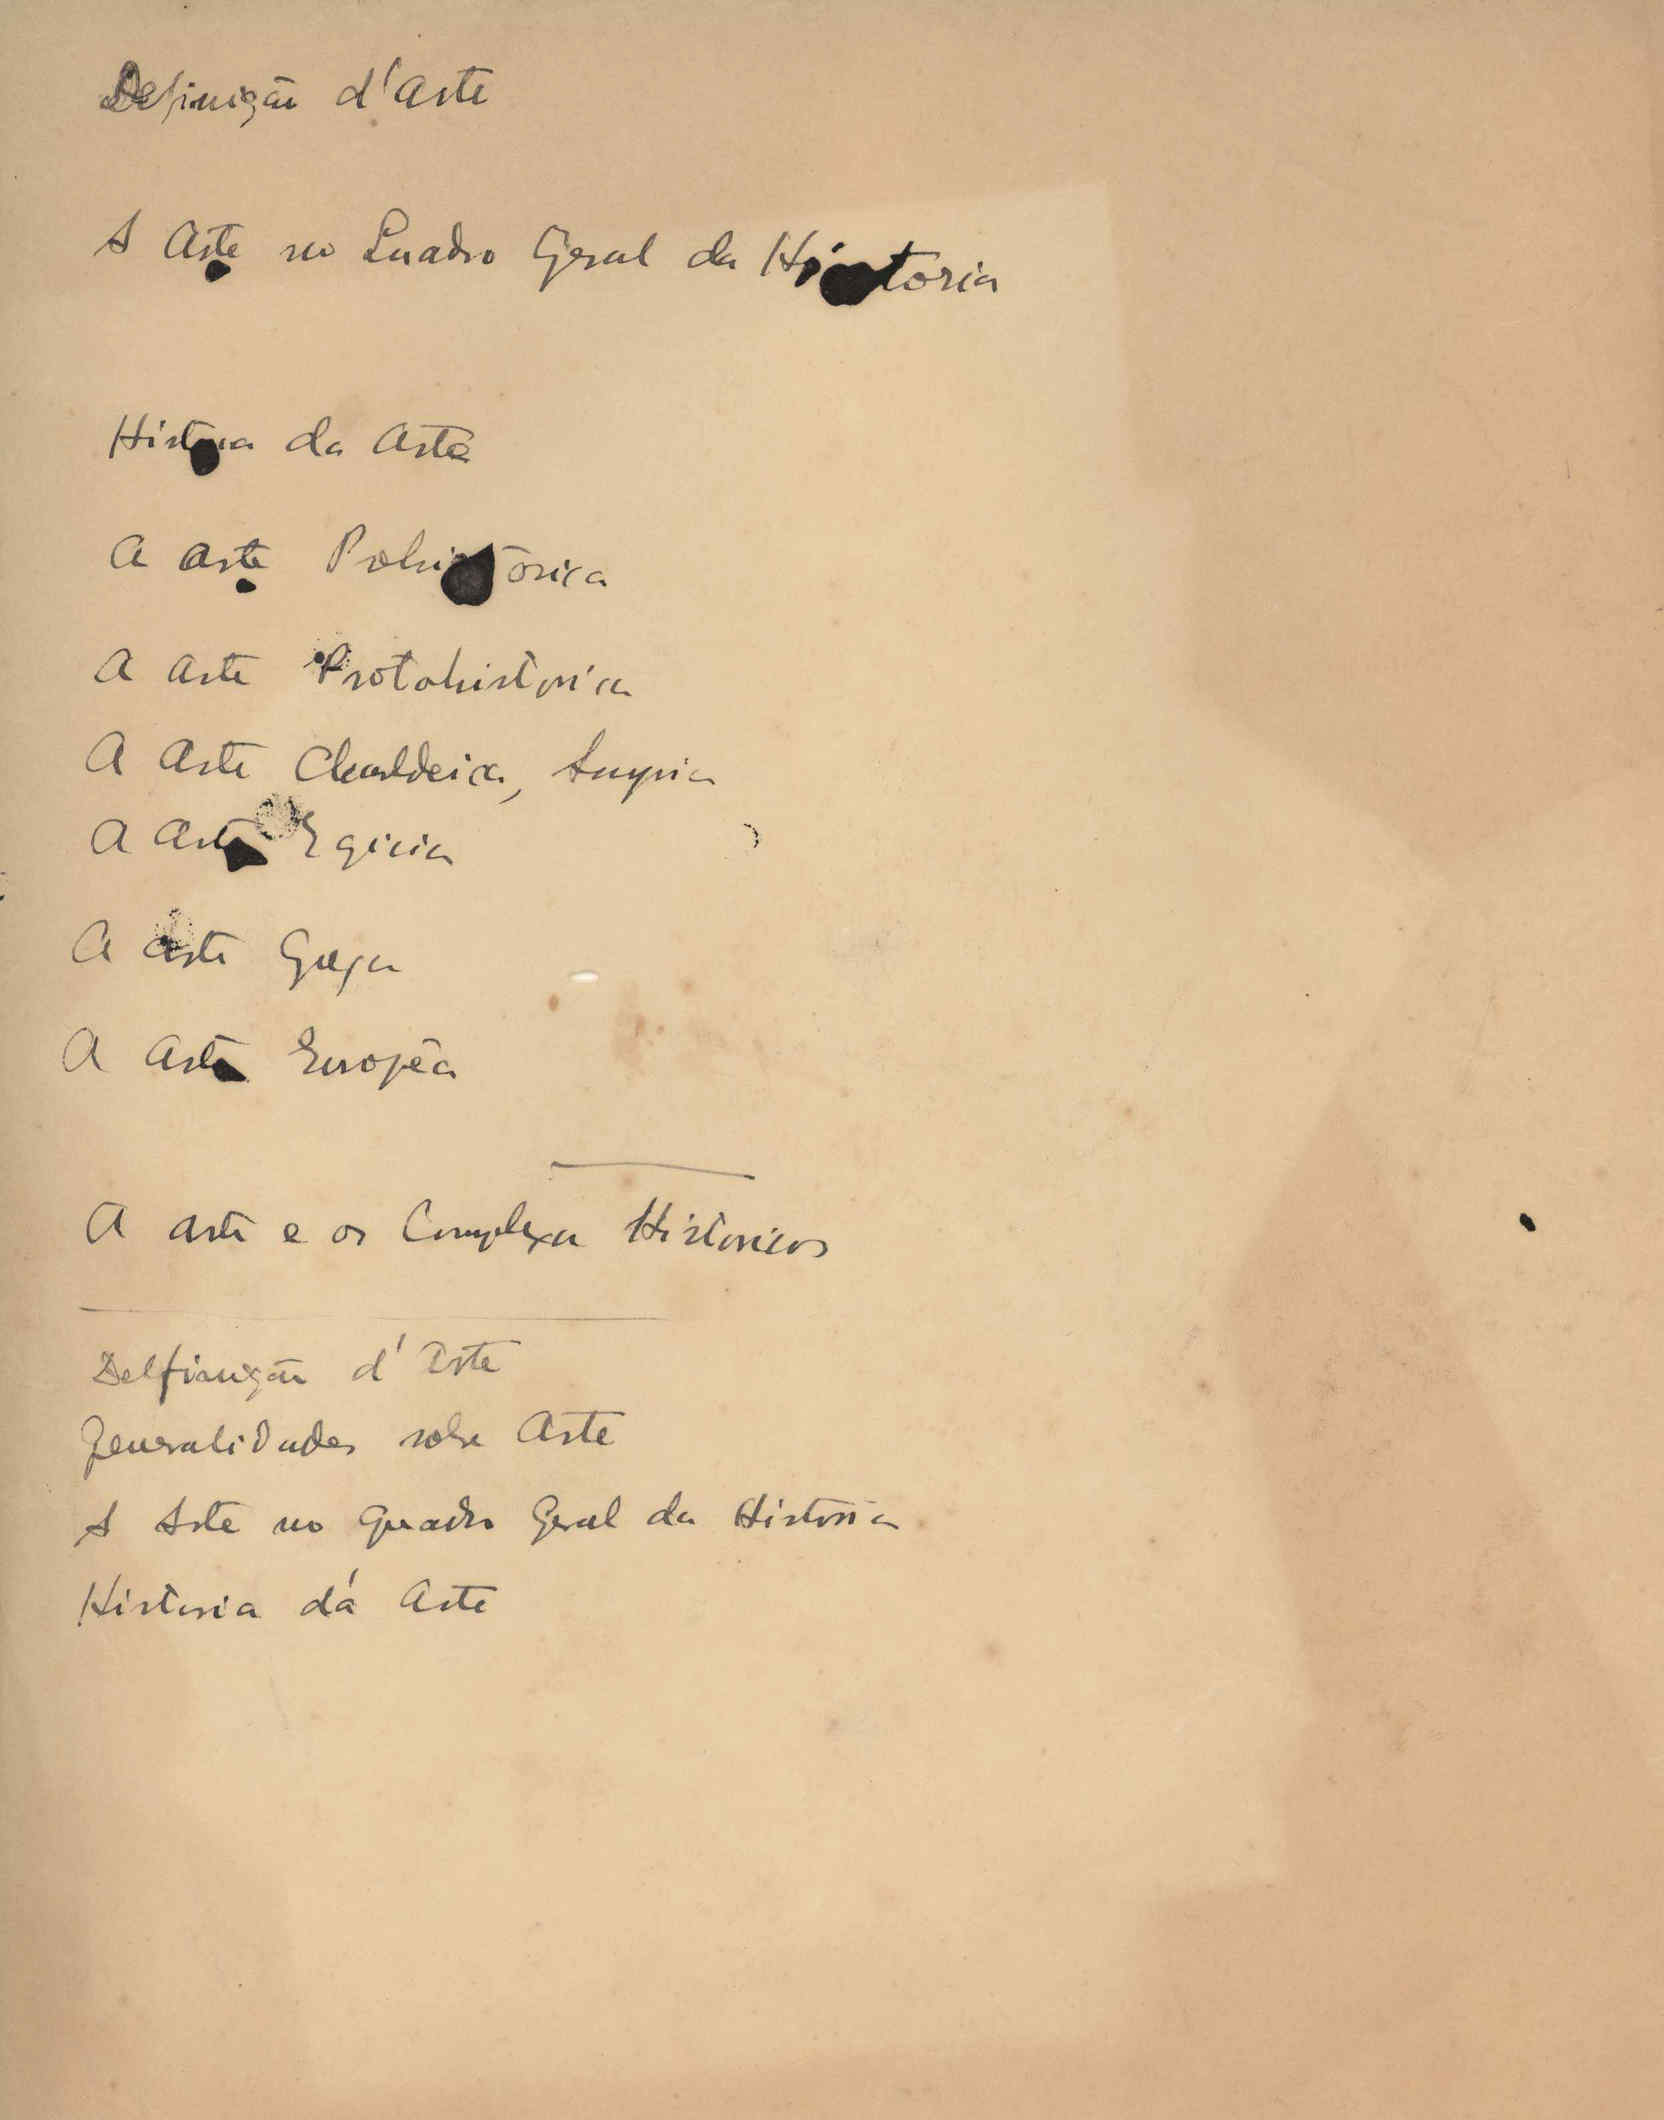 Definição d'Arte
A Arte no Quadro Geral da Historia
Historia da Arte
A arte Prehistórica
A Arte Protohistorica
A Arte Chaldeica, Assyria
A Arte Egicia
A arte Grega
A Arte Européa
A arte e os Complexos Historicos
Delfinição d'Arte
Generalidades sobre Arte
A Arte no Quadro Geral da Historia
Historia dá Arte